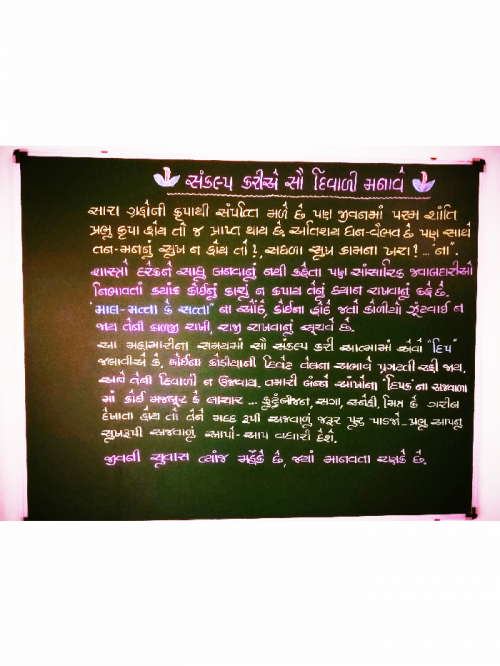 સંકલ્પ કરીએ સૌ દિવાળી મનાવે
સારા ગ્રહોની કૃપાથી સંપત્તિ મળે છે, પણ જીવનમાં પરમ શાંતિ
પ્રભુ કૃપા હોય તો જ પ્રાપ્ત થાય છે, અતિશય ધન-વૈભવ છે પણ સાથે
તન-મનનું સુખ ન હોય તો?, સઘળા સુખ કામના ખરા? ... "ના"
શાસ્ત્રો દરેકને સાધુ બનવાનું નથી કહેતા પણ સાંસારિક જવાબદારીઓ
નિભાવતાં ક્યાંક કોઈનું કાચું ન કપાય તેનું ધ્યાન રાખવાનું કહે છે.
"માલ-મત્તા કે સત્તા" ના ઓઠે, કોઈના હોઠે જતો કોળીયો ઝૂંટવાઈ ન
જાય તેની કાળજી રાખી, રાજી રાખવાનું સૂચવે છે.
આ મહામારીના સમયમાં સૌ સંકલ્પ કરી આત્મામાં એવો "દિપ"
જલાવીએ કે, કોઈના કોડીયાની દિવેટ તેલના અભાવે પ્રગટતી રહી જાય.
અને તેની દિવાળી ન ઉજવાય. તમારી બંન્ને આંખોના દિપક ના અજવાળા
માં કોઈ મજબુર કે લાચાર ... કુટુંબીજન, સગા, સ્નેહી, મિત્ર કે ગરીબ
દેખાતા હોય તો તેને મદદ રૂપી અજવાળું જરૂર પુરુ પાડજો - પ્રભુ આપનું
સુખરૂપી અજવાળું આપો-આપ વધારી દેશે.
જીવની સુવાસ ત્યાંજ મહેંકે છે, જ્યાં માનવતા ચળકે છે.